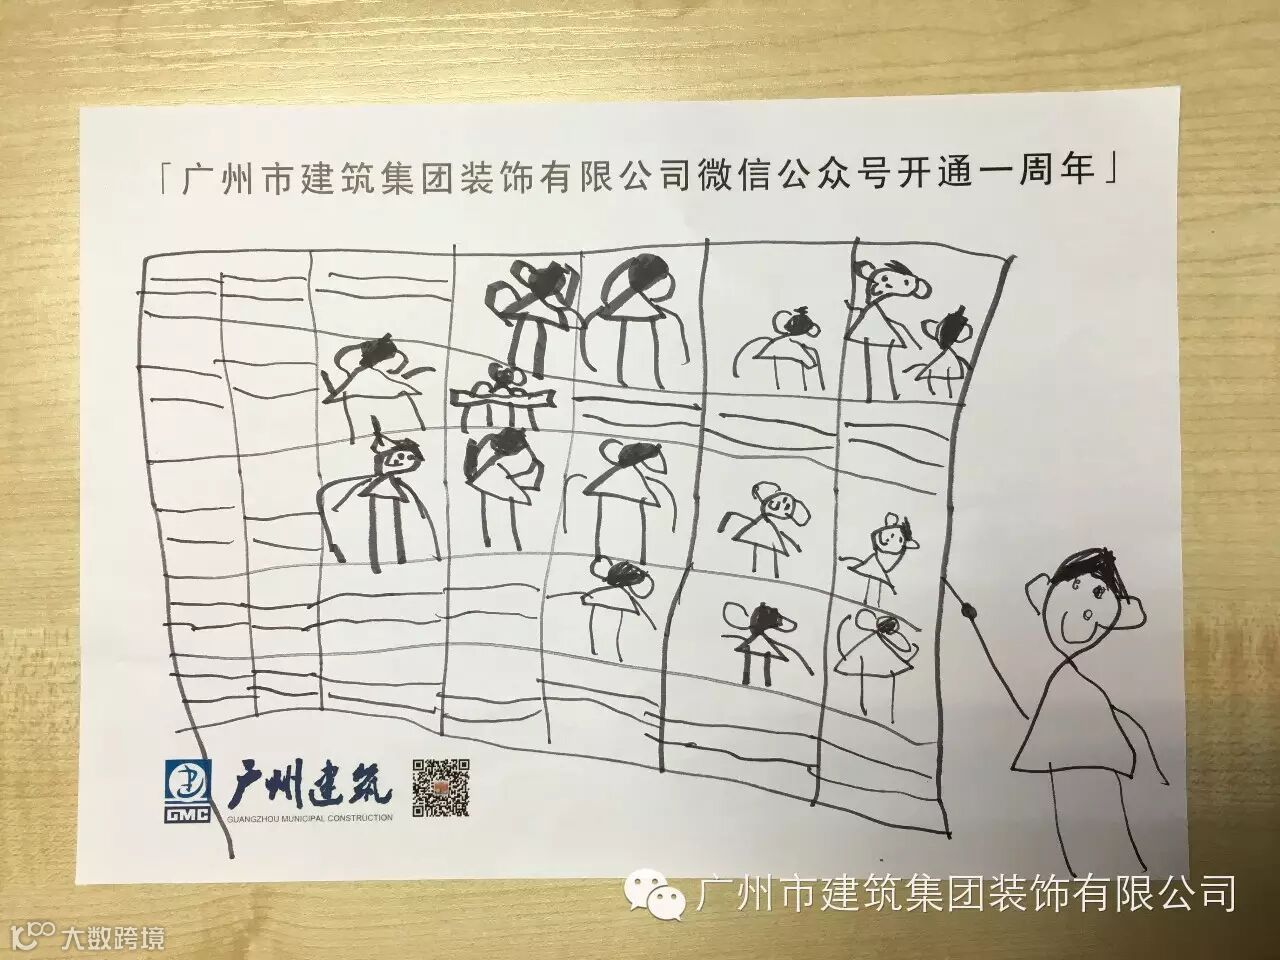 「广州市建筑集团装饰有限公司微信公众号开通一周年」
GMC
广州建筑
GUANGZHOU MUNICIPAL CONSTRUCTION
广州市建筑集团装饰有限公司
大数跨境